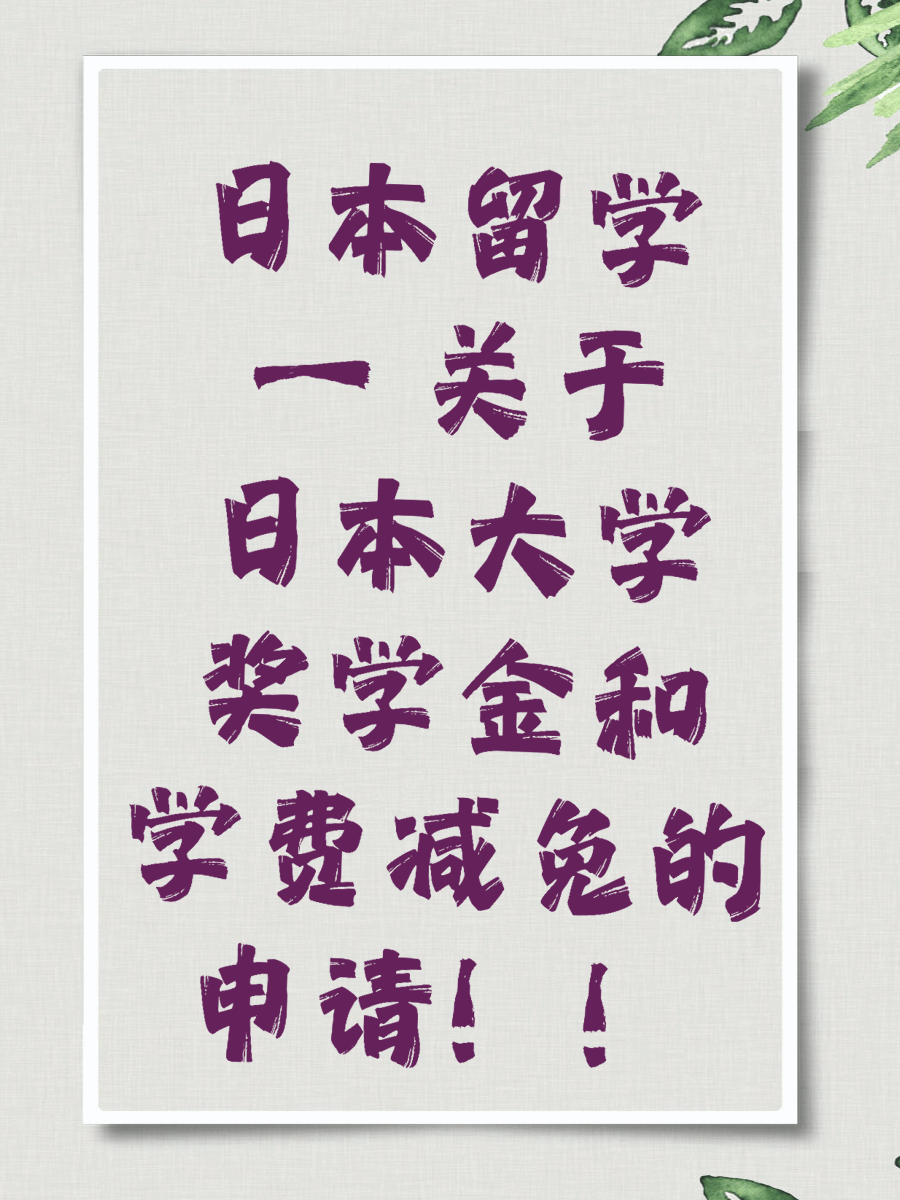 日本留学
一关于
日本大学
奖学金和
学费减免的
申请！！